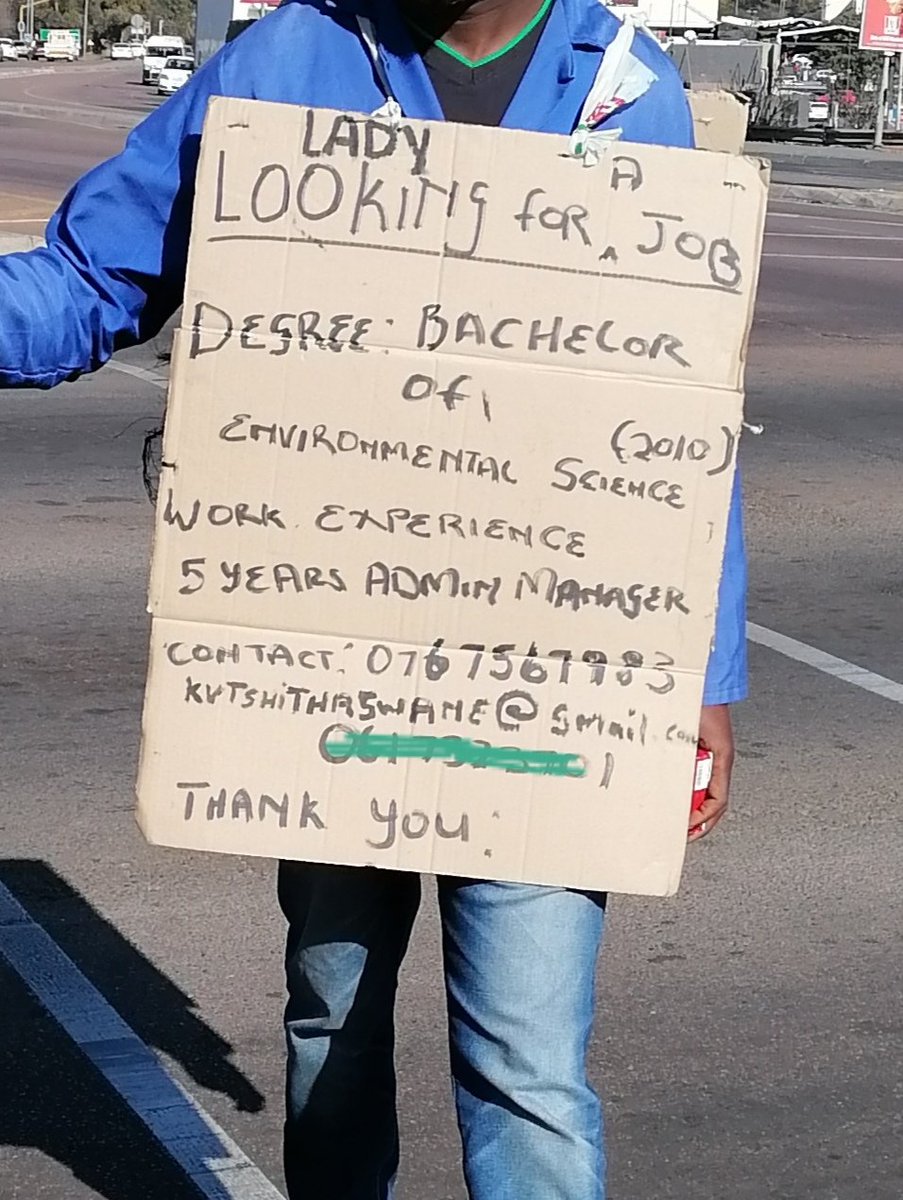 LADY
LOOKING FOR A JOB
DEGREE: BACHELOR
OF
ENVIRONMENTAL SCIENCE (2010)
WORK EXPERIENCE
5 YEARS ADMIN MANAGER
CONTACT: 0767567983
KUTSHITHASWANE@gmail.com
THANK YOU: